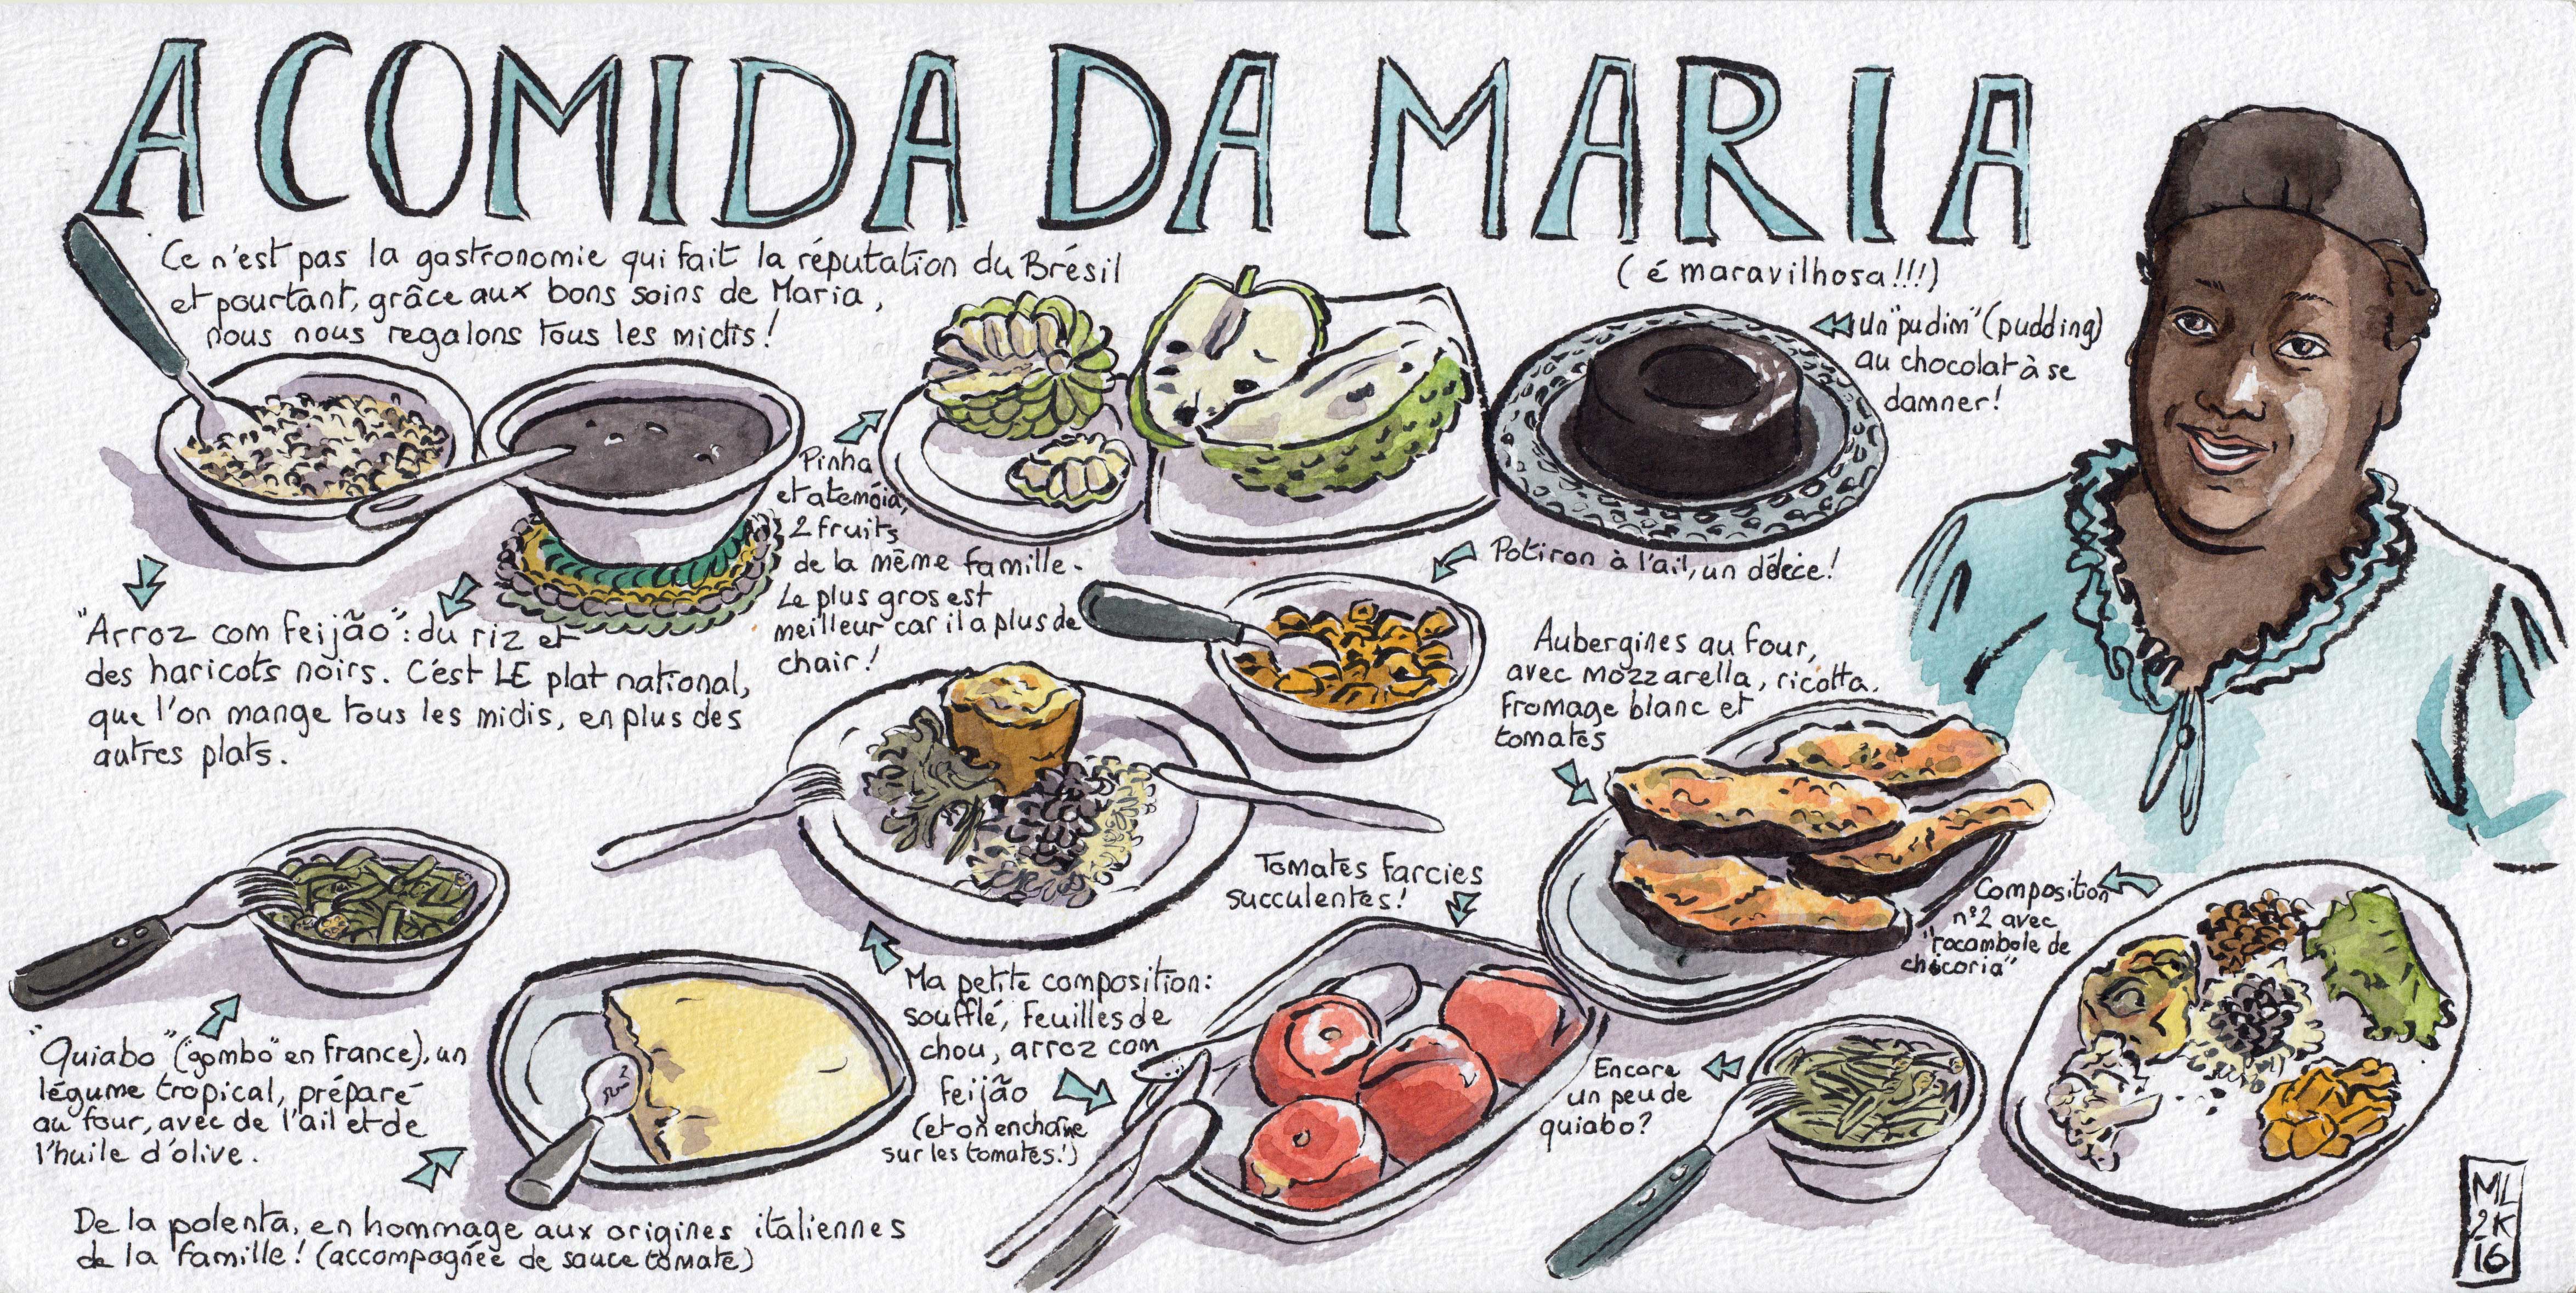 A COMIDA DA MARIA
(é maravilhosa!!!)
Ce n'est pas la gastronomie qui fait la réputation du Brésil
et pourtant, grâce aux bons soins de Maria,
nous nous regalons tous les midis!
Un "pudim" (pudding)
au chocolat à se
damner!
Pinha
et atemóia,
2 fruits
de la même famille.
Le plus gros est
meilleur car il a plus de
chair!
Potiron à l'ail, un délice!
"Arroz com feijão": du riz et
des haricots noirs. C'est LE plat national,
que l'on mange tous les midis, en plus des
autres plats.
Aubergines au four,
avec mozzarella, ricotta.
fromage blanc et
tomates
Tomates farcies
succulentes!
Composition
n°2 avec
"rocambole de
chicoria"
Ma petite composition:
soufflé, feuilles de
chou, arroz com
feijão
(et on enchaîne
sur les tomates!)
"Quiabo" ("gombo" en France), un
légume tropical, préparé
au four, avec de l'ail et de
l'huile d'olive.
Encore
un peu de
quiabo?
De la polenta, en hommage aux origines italiennes
de la famille! (accompagnée de sauce tomate)
ML
2K
16